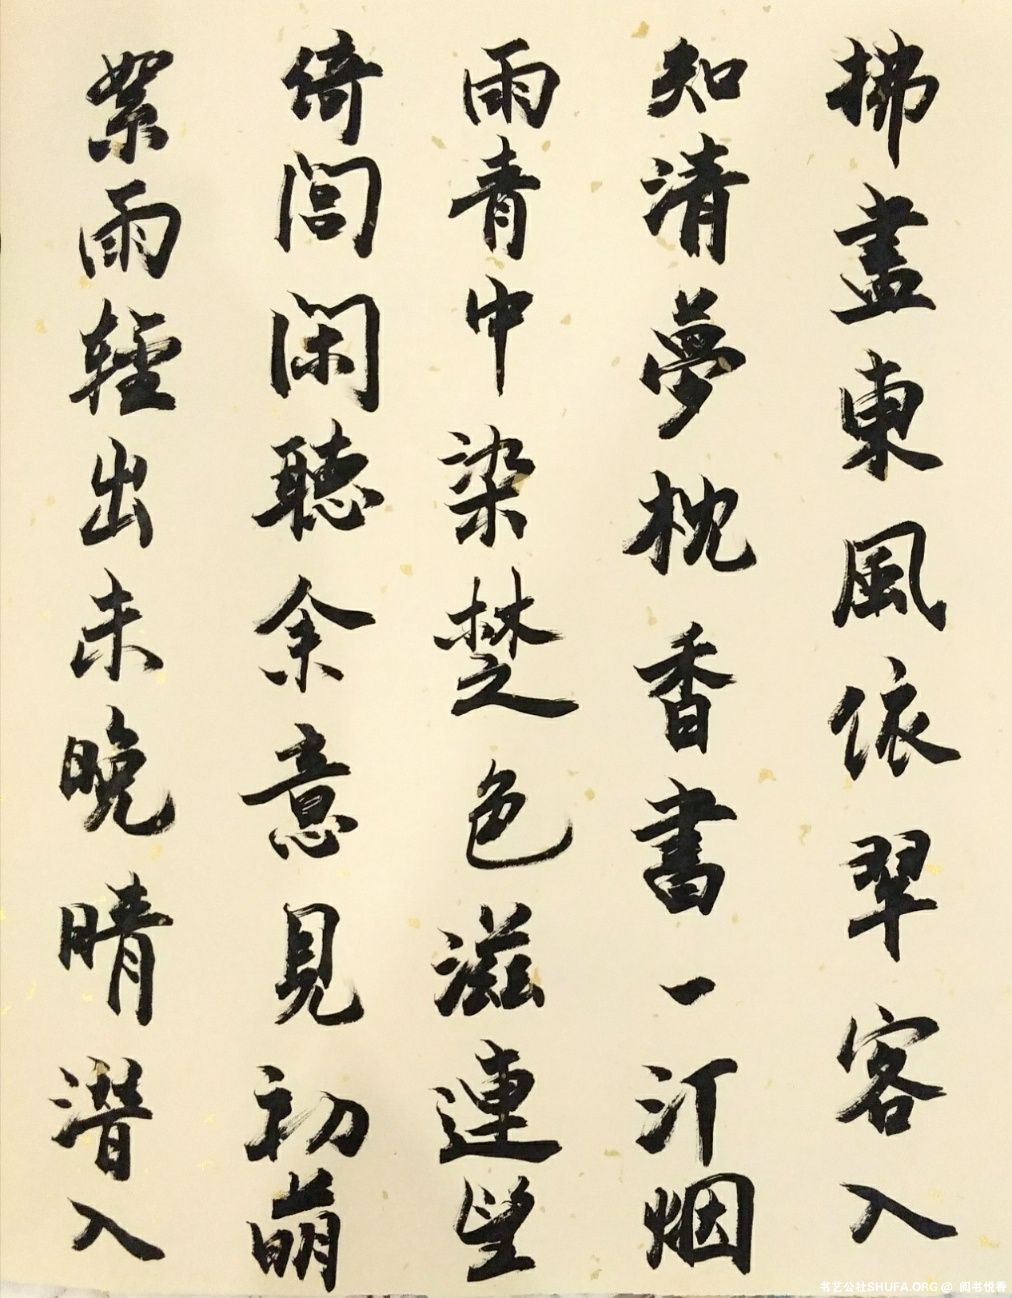 拂盡東風依翠客入
知清夢枕香書一汀烟
雨青中染楚色滋連望
倚閭闲聽余意見初萌
絮雨輕出未晚晴潛入
书艺公社SHUFA.ORG@ 阅书悦香